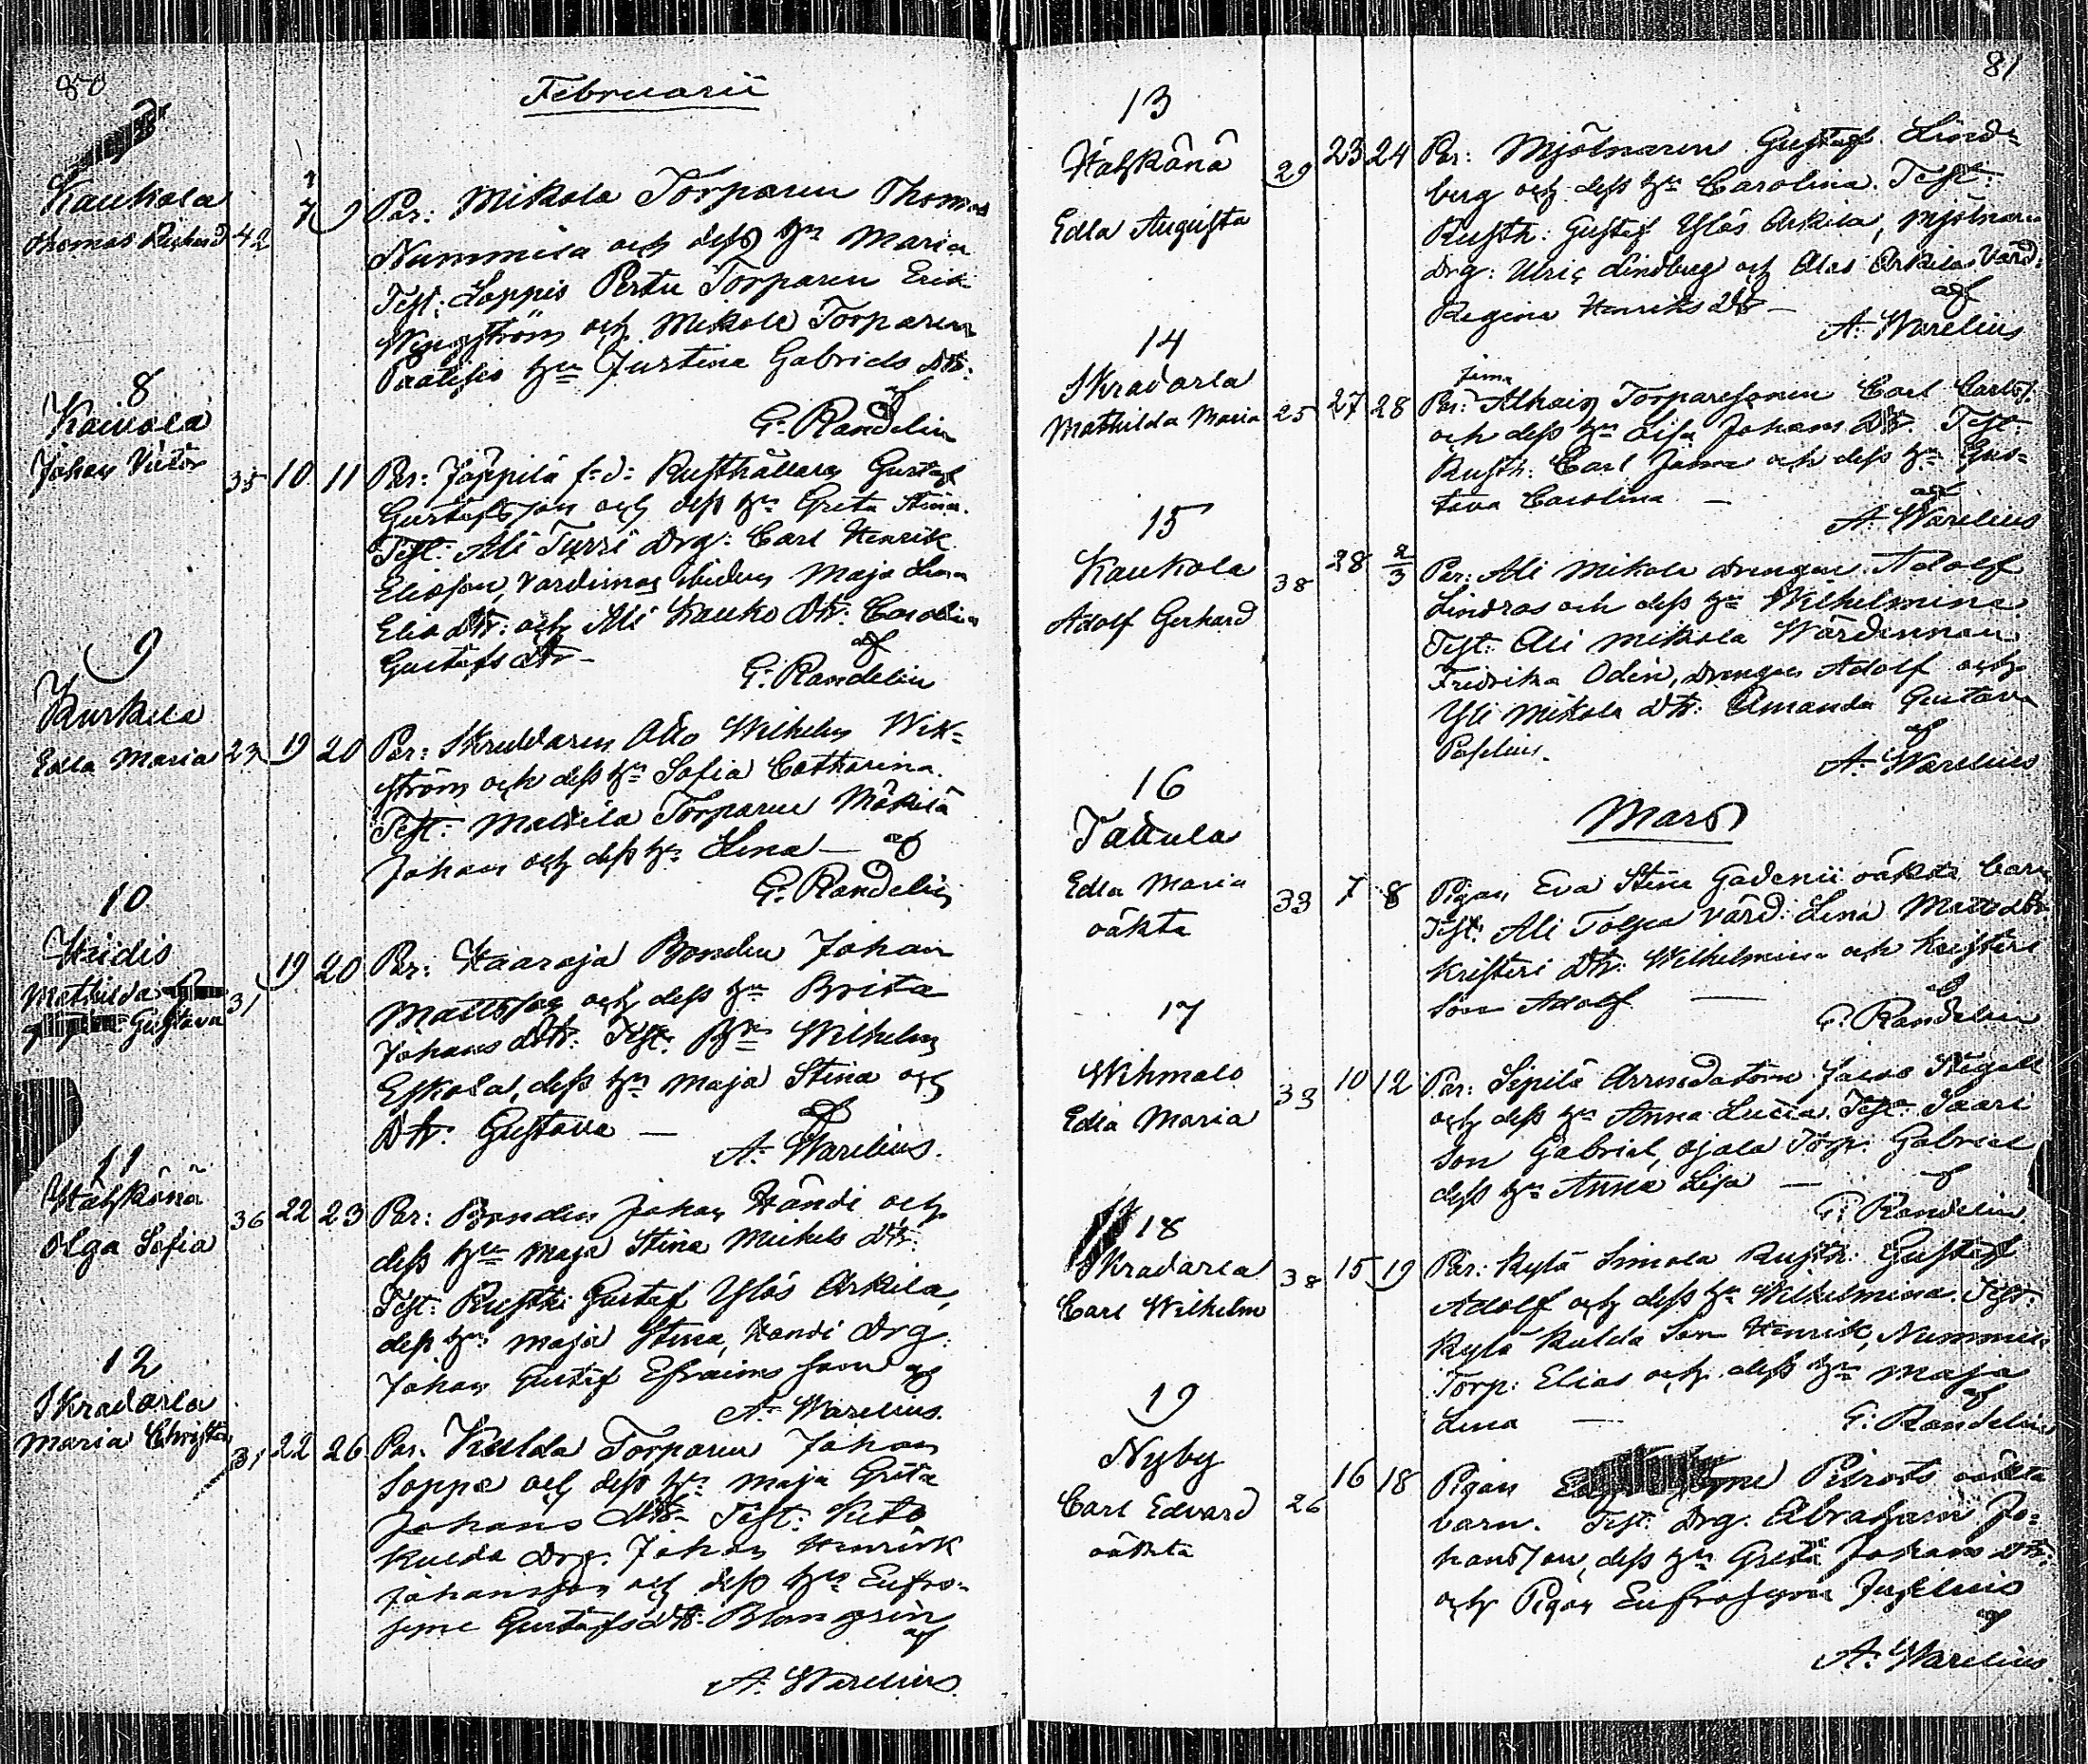 80
Februarii
Kaukola
Thomas Rickard 42 7 9 Par: Mikola Torparen Thomas
Nummila och dess hu Maria
Test: Loppis Pertu Torparen Erik
och Mikola Torparen
hu Justina Gabriels Dtr:
af
G: Randelin
8
Kaivola
Johan Victor 35 10 11 Par: Jäppilä f.d. Rusthållaren Gustaf
Gustafsson och dess hu Greta Stina.
Test: Ali Turri Drg: Carl Henrik
Eliasson, Maja Lena
Elias Dtr: och Ali Kauko Dtr: Carolina
Gustafs Dtr – af
G: Randelin
9
Kurkela
Edla Maria 23 19 20 Par: Skreddaren Otto Wilhelm Wik=
ström och dess hu Sofia Catharina.
Test: Mattila Torparen Mäkilä
Johan och dess hu Lena – af
G: Randelin
10
Hiidis
Mathilda
Gustava 31 19 20 Par: Haaroja Bonden Johan
Mattsson och dess hu Brita
Johans Dtr: Test: Bn Wilhelm
Eskola, dess hu Maja Stina och
Dtr: Gustava – af
A: Warelius.
11
Hätskänä
Olga Sofia 36 22 23 Par: Bonden Johan Händi och
dess hu Maja Stina Mickels Dtr:
Test: Rusth: Gustaf Ylös Arkila,
dess hu Maja Stina, Handi Drg.
Johan Gustaf Efraims son af
A: Warelius.
12
Skradarla
Maria Christina 31 22 26 Par. Kulda Torparen Johan
Soppa och dess hu Maja Greta
Johans Dtr– Test:
Kulda Drg. Johan Henrik
Johansson och dess hu Eufro-
syne Gustafs Dtr. Blomgrén
af
A: Warelius.
81
13
Hätskänä 29 23 24 Par: Mjölnaren Gustaf Lind=
Edla Augusta
berg och dess hu Carolina. Test:
Rusth: Gustaf Ylös Arkila, Mjölnare
Drg: Ulric Lindberg och Alas Arkilas Värd:
Regina Henriks Dtr –
af
A: Warelius
14
Skradarla
Mathilda Maria 25 27 28 Par: Torparesonen Carl Carls.
och dess hu Lisa Johans Dtr. Test:
Rusth: Carl och dess hu Gus=
tava Carolina –
af
A: Warelius
15
Kaukola 38 28 2/3 Par: Ali Mikola Drengen Adolf
Adolf Gerhard
Lindros och dess hu Wilhelmina
Test: Ali Mikola Wärdinnan
Fredrika Odin, Drengen Adolf och
Yli Mikola Dtr: Amanda Gustava
af
A: Warelius
Mars
16
Tattula
Edla Maria 33 7 8 Pigan Eva Stina oäkta barn
oäkta
Test: Ali Tolpa Värd: Lena Matts Dtr:
Kristeri Dtr: Wilhelmina och Kristeri
Son Adolf –
af
G: Randelin
17
Wihmalo
Edla Maria 33 10 12 Par: Sipilä
och dess hu Anna Lucia. Test: Saari
Son Gabriel, Ojala Torp: Gabriel
dess hu Anna Lisa –
af
G: Randelin.
18
Skradarla
Carl Wilhelm 38 15 19 Par: Kylä Simola Rusth: Gustaf
Adolf och dess hu Wilhelmina. Test:
Kylä Kulda Son Henrik, Nummila
Torp: Elias och dess hu Maja
Lena – af
G: Randelin
19
Nyby
Carl Edvard 26 16 18 Pigan oäkta
oäkta
barn. Test: Drg: Abraham Jo=
hansson, dess hu Greta Johans Dtr:
och Pigan Eufrosyna
af
A: Warelius.